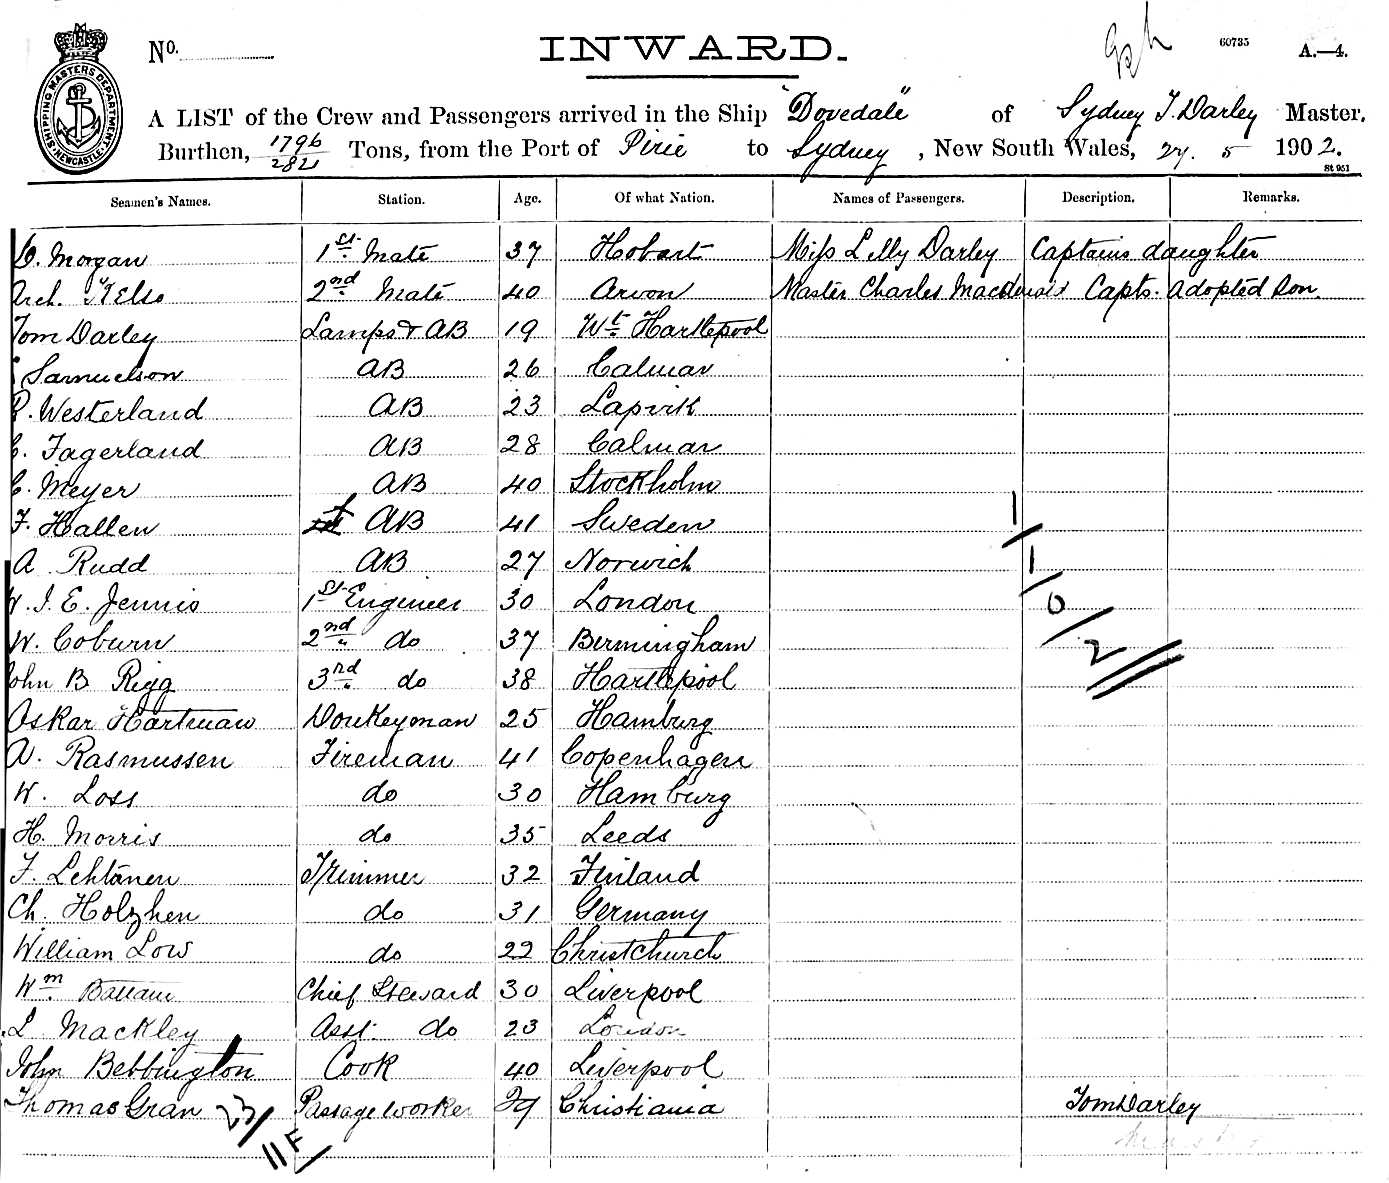 No. INWARD. 60735 A.—4.
SHIPPING MASTERS DEPARTMENT NEWCASTLE
A LIST of the Crew and Passengers arrived in the Ship "Dovedale" of Sydney T. Darley Master,
Burthen, 1796/2821 Tons, from the Port of Pirie to Sydney, New South Wales, 27. 5 1902.
St 951
Seamen's Names. Station. Age. Of what Nation. Names of Passengers. Description. Remarks.
D. Morgan 1st Mate 37 Hobart Miss Lilly Darley Captains daughter
Arch. Kelso 2nd Mate 40 Arvon Master Charles Capts. adopted Son.
Tom Darley Lamps & AB 19 Wt Hartlepool
Samuelson AB 26 Calmar
R. Westerland AB 23 Lapvik
C. Fagerland AB 28 Calmar
C. Meyer AB 40 Stockholm
F. Hallen AB 41 Sweden
A Rudd AB 27 Norwich
W. J. E. Jennis 1st Engineer 30 London
W. Coburn 2nd do 37 Birmingham
John B Rigg 3rd do 38 Hartlepool
Oskar Hartman Donkeyman 25 Hamburg
A. Rasmussen Fireman 41 Copenhagen
W. Loss do 30 Hamburg
H. Morris do 35 Leeds
F. Lehtanen Trimmer 32 Finland
Ch. Holzhen do 31 Germany
William Low do 22 Christchurch
Wm Battam Chief Steward 30 Liverpool
L Mackley Asst. do 23 London
John Bebbington Cook 40 Liverpool
Thomas Gran Passage worker 29 Christiania Tom Darley
1/1/0/2
23/11F